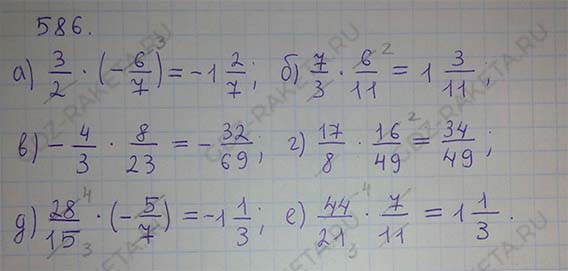 586.
а) 3/2 · (-6/7) 3 = -1 2/7; б) 7/3 · 6/11 2 = 1 3/11;
в) -4/3 · 8/23 = -32/69; г) 17/8 · 16/49 2 = 34/49;
д) 28/15 4 3 · (-5/7) = -1 1/3; е) 44/21 4 3 · 7/11 = 1 1/3.
GDZ-RAKETA.RU